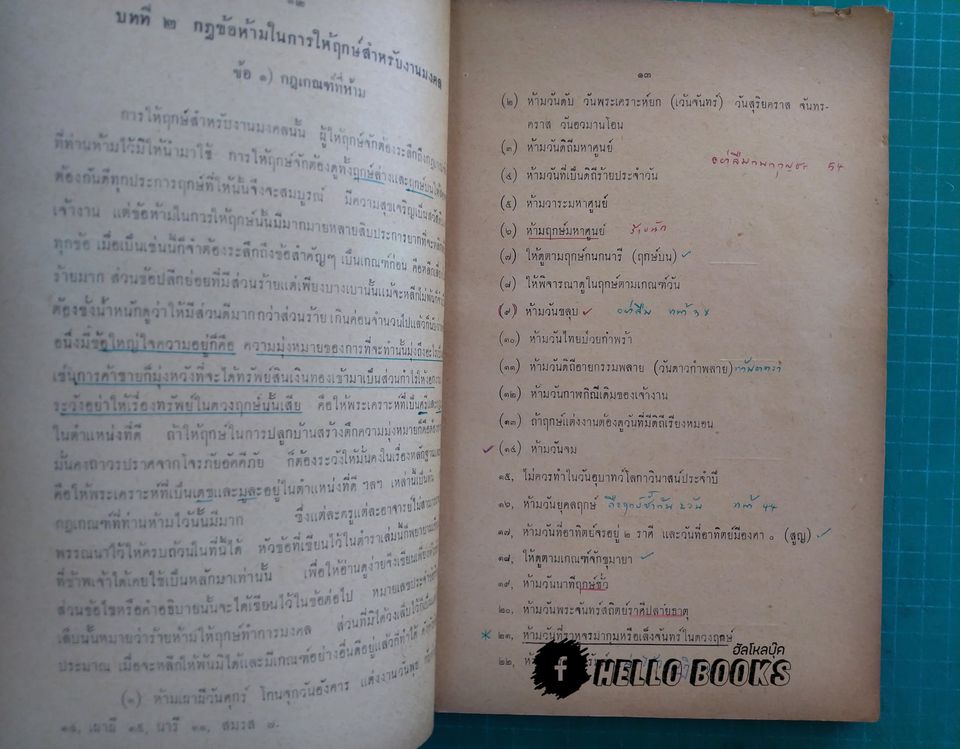 ๑๒
บทที่ ๒ กฎข้อห้ามในการให้ฤกษ์สำหรับงานมงคล
ข้อ ๑) กฎเกณฑ์ที่ห้าม
การให้ฤกษ์สำหรับงานมงคลนั้น ผู้ให้ฤกษ์จักต้องระลึกถึง
ที่ท่านห้ามไว้มิให้นำมาใช้ การให้ฤกษ์จักต้องดูทั้งฤกษ์ล่างและฤกษ์บน
ต้องกันดีทุกประการฤกษ์ที่ให้นั้นจึงจะสมบูรณ์ มีความสุขเจริญ
เจ้างาน แต่ข้อห้ามในการให้ฤกษ์นั้นมีมากมายหลายสิบประการยากที่จะ
ทุกข้อ เมื่อเป็นเช่นนี้ก็จำต้องระลึกถึงข้อสำคัญๆ เป็นเกณฑ์ก่อน
ร้ายมาก ส่วนข้อปลีกย่อยที่มีส่วนร้ายแต่เพียงบางเบานั้นแม้จะ
ต้องชั่งน้ำหนักดูว่าให้มีส่วนดีมากกว่าส่วนร้าย เกินค่อนจำนวนไปแล้ว
อนึ่งมีข้อใหญ่ใจความอยู่ก็คือ ความมุ่งหมายของการที่จะทำนั้นมุ่งถึง
เช่นการค้าขายก็มุ่งหวังที่จะได้ทรัพย์สินเงินทองเข้ามาเป็นส่วนกำไร
ระวังอย่าให้เรื่องทรัพย์ในดวงฤกษ์นั้นเสีย คือให้พระเคราะห์ที่เป็นศรี
ในตำแหน่งที่ดี ถ้าให้ฤกษ์ในการปลูกบ้านสร้างตึกความมุ่งหมายก็คือ
มั่นคงถาวรปราศจากโจรภัยอัคคีภัย ก็ต้องระวังให้มั่นคงในเรื่องหลักฐาน
คือให้พระเคราะห์ที่เป็นเดชและมูละอยู่ในตำแหน่งที่ดี ฯลฯ เหล่านี้เป็นต้น
กฎเกณฑ์ที่ท่านห้ามไว้นั้นมีมาก ซึ่งแต่ละครูแต่ละอาจารย์ไม่สามารถ
พรรณนาไว้ให้ครบถ้วนในที่นี้ได้ หัวข้อที่เขียนไว้ในตำราเล่มนี้ก็พยายาม
ที่ข้าพเจ้าได้เคยใช้เป็นหลักมาเท่านั้น เพื่อให้อ่านดูง่ายจึงเขียนเพียง
ส่วนข้อไขหรือคำอธิบายนั้นจะได้เขียนไว้ในข้อต่อไป หมายเลขประจำ
เล็บนั้นหมายว่าร้ายห้ามให้ฤกษ์ทำการมงคล ส่วนที่มิได้วงเล็บไว้
ประมาณ เมื่อจะหลีกให้พ้นมิได้และมีเกณฑ์อย่างอื่นดีอยู่แล้วก็ทำได้
(๑) ห้ามเผาผีวันศุกร์ โกนจุกวันอังคาร แต่งงานวันพุธ
๑๕, เผาผี ๑๕, นารี ๑๑, สมรส ๗-
๑๓
(๒) ห้ามวันดับ วันพระเคราะห์ยก (เว้นจันทร์) วันสุริยคราส จันทร-
คราส วันอวมานโอน
(๓) ห้ามวันดิถีมหาศูนย์
๕๔
(๔) ห้ามวันที่เป็นดิถีร้ายประจำวัน
(๕) ห้ามวาระมหาศูนย์
(๖) ห้ามฤกษ์มหาศูนย์ ร้ายนัก
(๗) ให้ดูตามฤกษ์กนกนารี (ฤกษ์บน)
(๘) ให้พิจารณาดูในฤกษ์ตามเกณฑ์วัน
(๙) ห้ามวันขลุบ
(๑๐) ห้ามวันไทยป่วยกำพร้า
(๑๑) ห้ามวันดิถีอายกรรมพลาย (วันดาวกำพลาย)
(๑๒) ห้ามวันกาพกิณีเดิมของเจ้างาน
(๑๓) ถ้าฤกษ์แต่งงานต้องดูวันที่มีดิถีเรียงหมอน
(๑๔) ห้ามวันจม
๑๕, ไม่ควรทำในวันอุบาทว์โลกาวินาสน์ประจำปี
๑๖, ห้ามวันยุคลฤกษ์ ๔๔
๑๗, ห้ามวันที่อาทิตย์จรอยู่ ๒ ราศี และวันที่อาทิตย์มีองศา ๐ (สูญ)
๑๘, ให้ดูตามเกณฑ์จักขุมายา
๑๙, ห้ามวันนาทีฤกษ์ชั่ว
๒๐, ห้ามวันพระจันทร์สถิตย์ราศีปลายธาตุ
* ๒๑, ห้ามวันที่ราหูจรมากุมหรือเล็งจันทร์ในดวงฤกษ์
๒๒,
ฮัลโหลบุ๊ค
f HELLO BOOKS